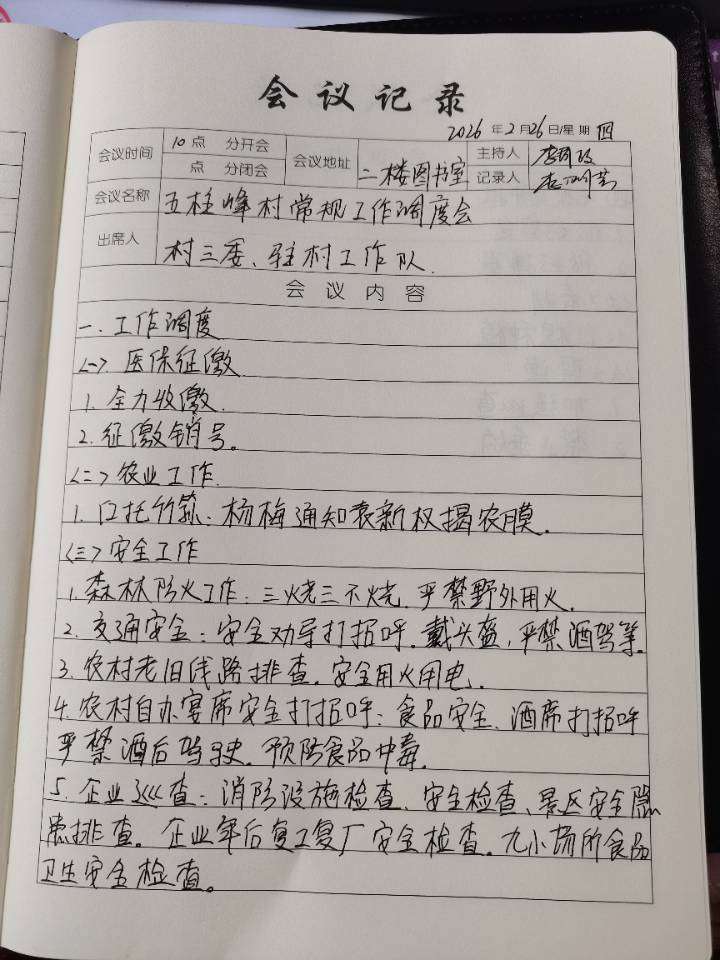 会议记录
2026年2月26日/星期四
会议时间 10点 分开会 会议地址 二楼图书室 主持人
点 分闭会 记录人
会议名称 五柱峰村常规工作调度会
出席人 村三委、驻村工作队.
会议内容
一.工作调度
<一>医保征缴
1.全力收缴.
2.征缴销号。
<二>农业工作.
1. 竹荪:杨梅通知袁新权揭农膜.
<三>安全工作
1.森林防火工作:三烧三不烧.严禁野外用火.
2.交通安全:安全劝导打招呼.戴头盔,严禁酒驾等.
3.农村老旧线路排查.安全用火用电.
4.农村自办宴席安全打招呼:食品安全.酒席打招呼
严禁酒后驾驶.预防食品中毒.
5.企业巡查:消防设施检查、安全检查、景区安全隐
患排查。企业年后复工复厂安全检查.九小场所食品
卫生安全检查。